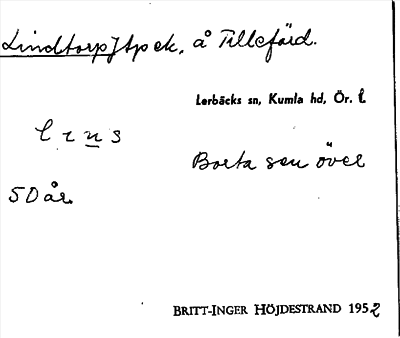 Lindtorp, tpek, å Tilleförd.
Lerbäcks sn, Kumla hd, Ör. l.
Borta sen över
50 år.
BRITT-INGER HÖJDESTRAND 1952